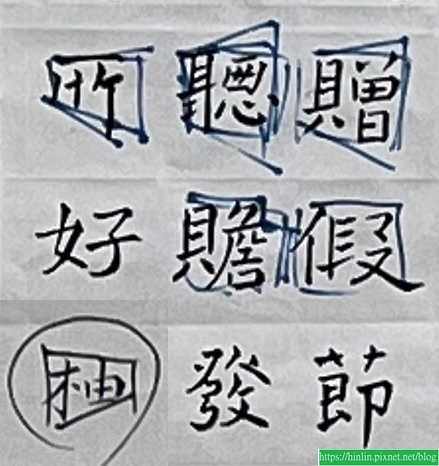 竹聰贈
好贍假
柚發節
https://hinlin.pixnet.net/blog